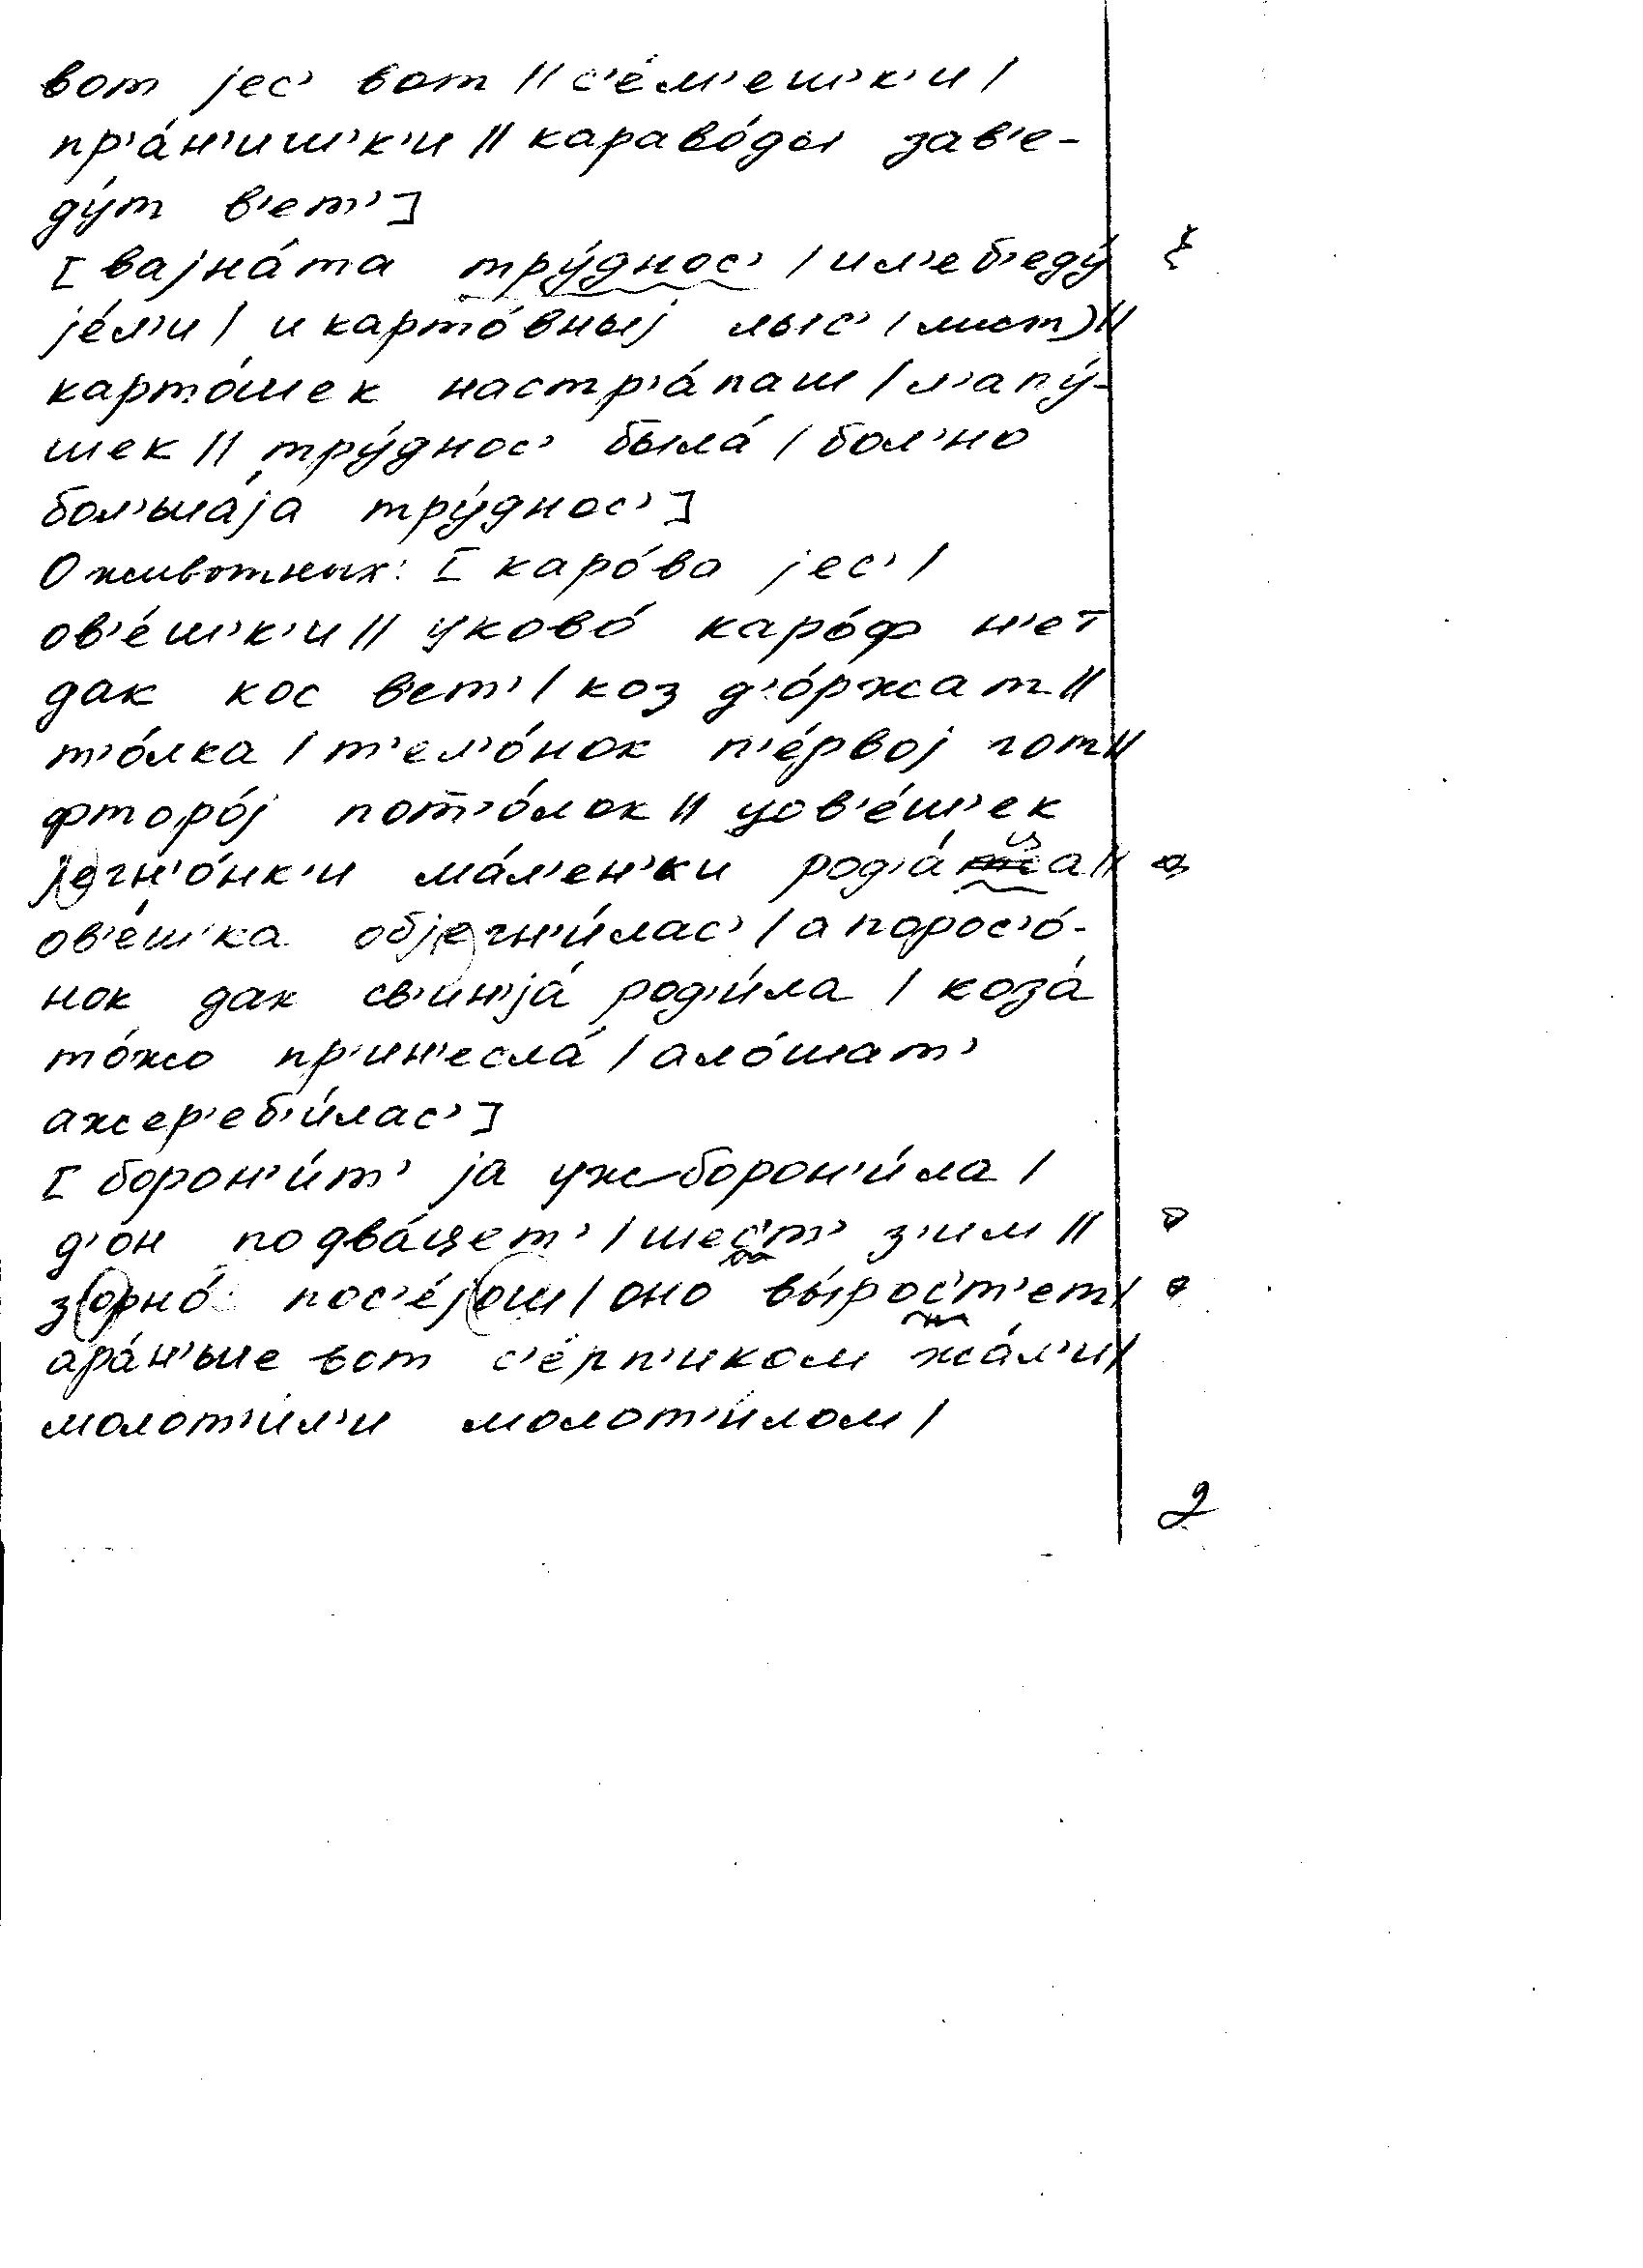 вот jес’ вот // с’е́м’еш’к’и /
пр’а́н’иш’к’и // карово́ды зав’е-
ду́т в’ет’]
[вајна́та тру́днос’ / ил’еб’еду́
jе́л’и / и карто́вныј лыс’ (лист) //
карто́шек настр’а́паш / л’апу́-
шек // тру́днос’ была́ / бол’но
бол’ша́jа тру́днос’]
О животных: [каро́ва jес’ /
ов’е́ш’к’и // уково́ каро́ф н’ет
дак кос вет’ / коз д’о́ржат //
т’о́лка / т’ел’о́нок п’е́рвој гот //
фторо́ј пот’о́лок // уов’е́ш’ек
jегн’о́нк’и ма́л’ен’ки род’а́ца //
ов’е́ш’ка обjегн’и́лас’ / а порос’о́-
нок дак св’ин’jа́ род’и́ла / коза́
то́жо пр’ин’есла́ / ало́шат’
ажер’еб’и́лас’]
[борон’и́т’ jа уж борон’и́ла /
д’он подва́цет’ / шес’т’ з’им //
зорно́ пос’е́jош / оно вы́рос’т’ет /
ара́н’ше вот с’ёрп’иком жа́л’и /
молот’и́л’и молот’и́лом /
2